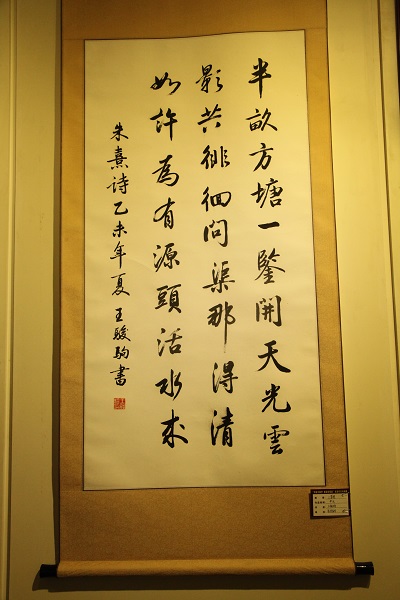 半畝方塘一鑒開天光雲
影共徘徊問渠那得清
如許為有源頭活水来
朱熹詩乙未年夏王駿駒書